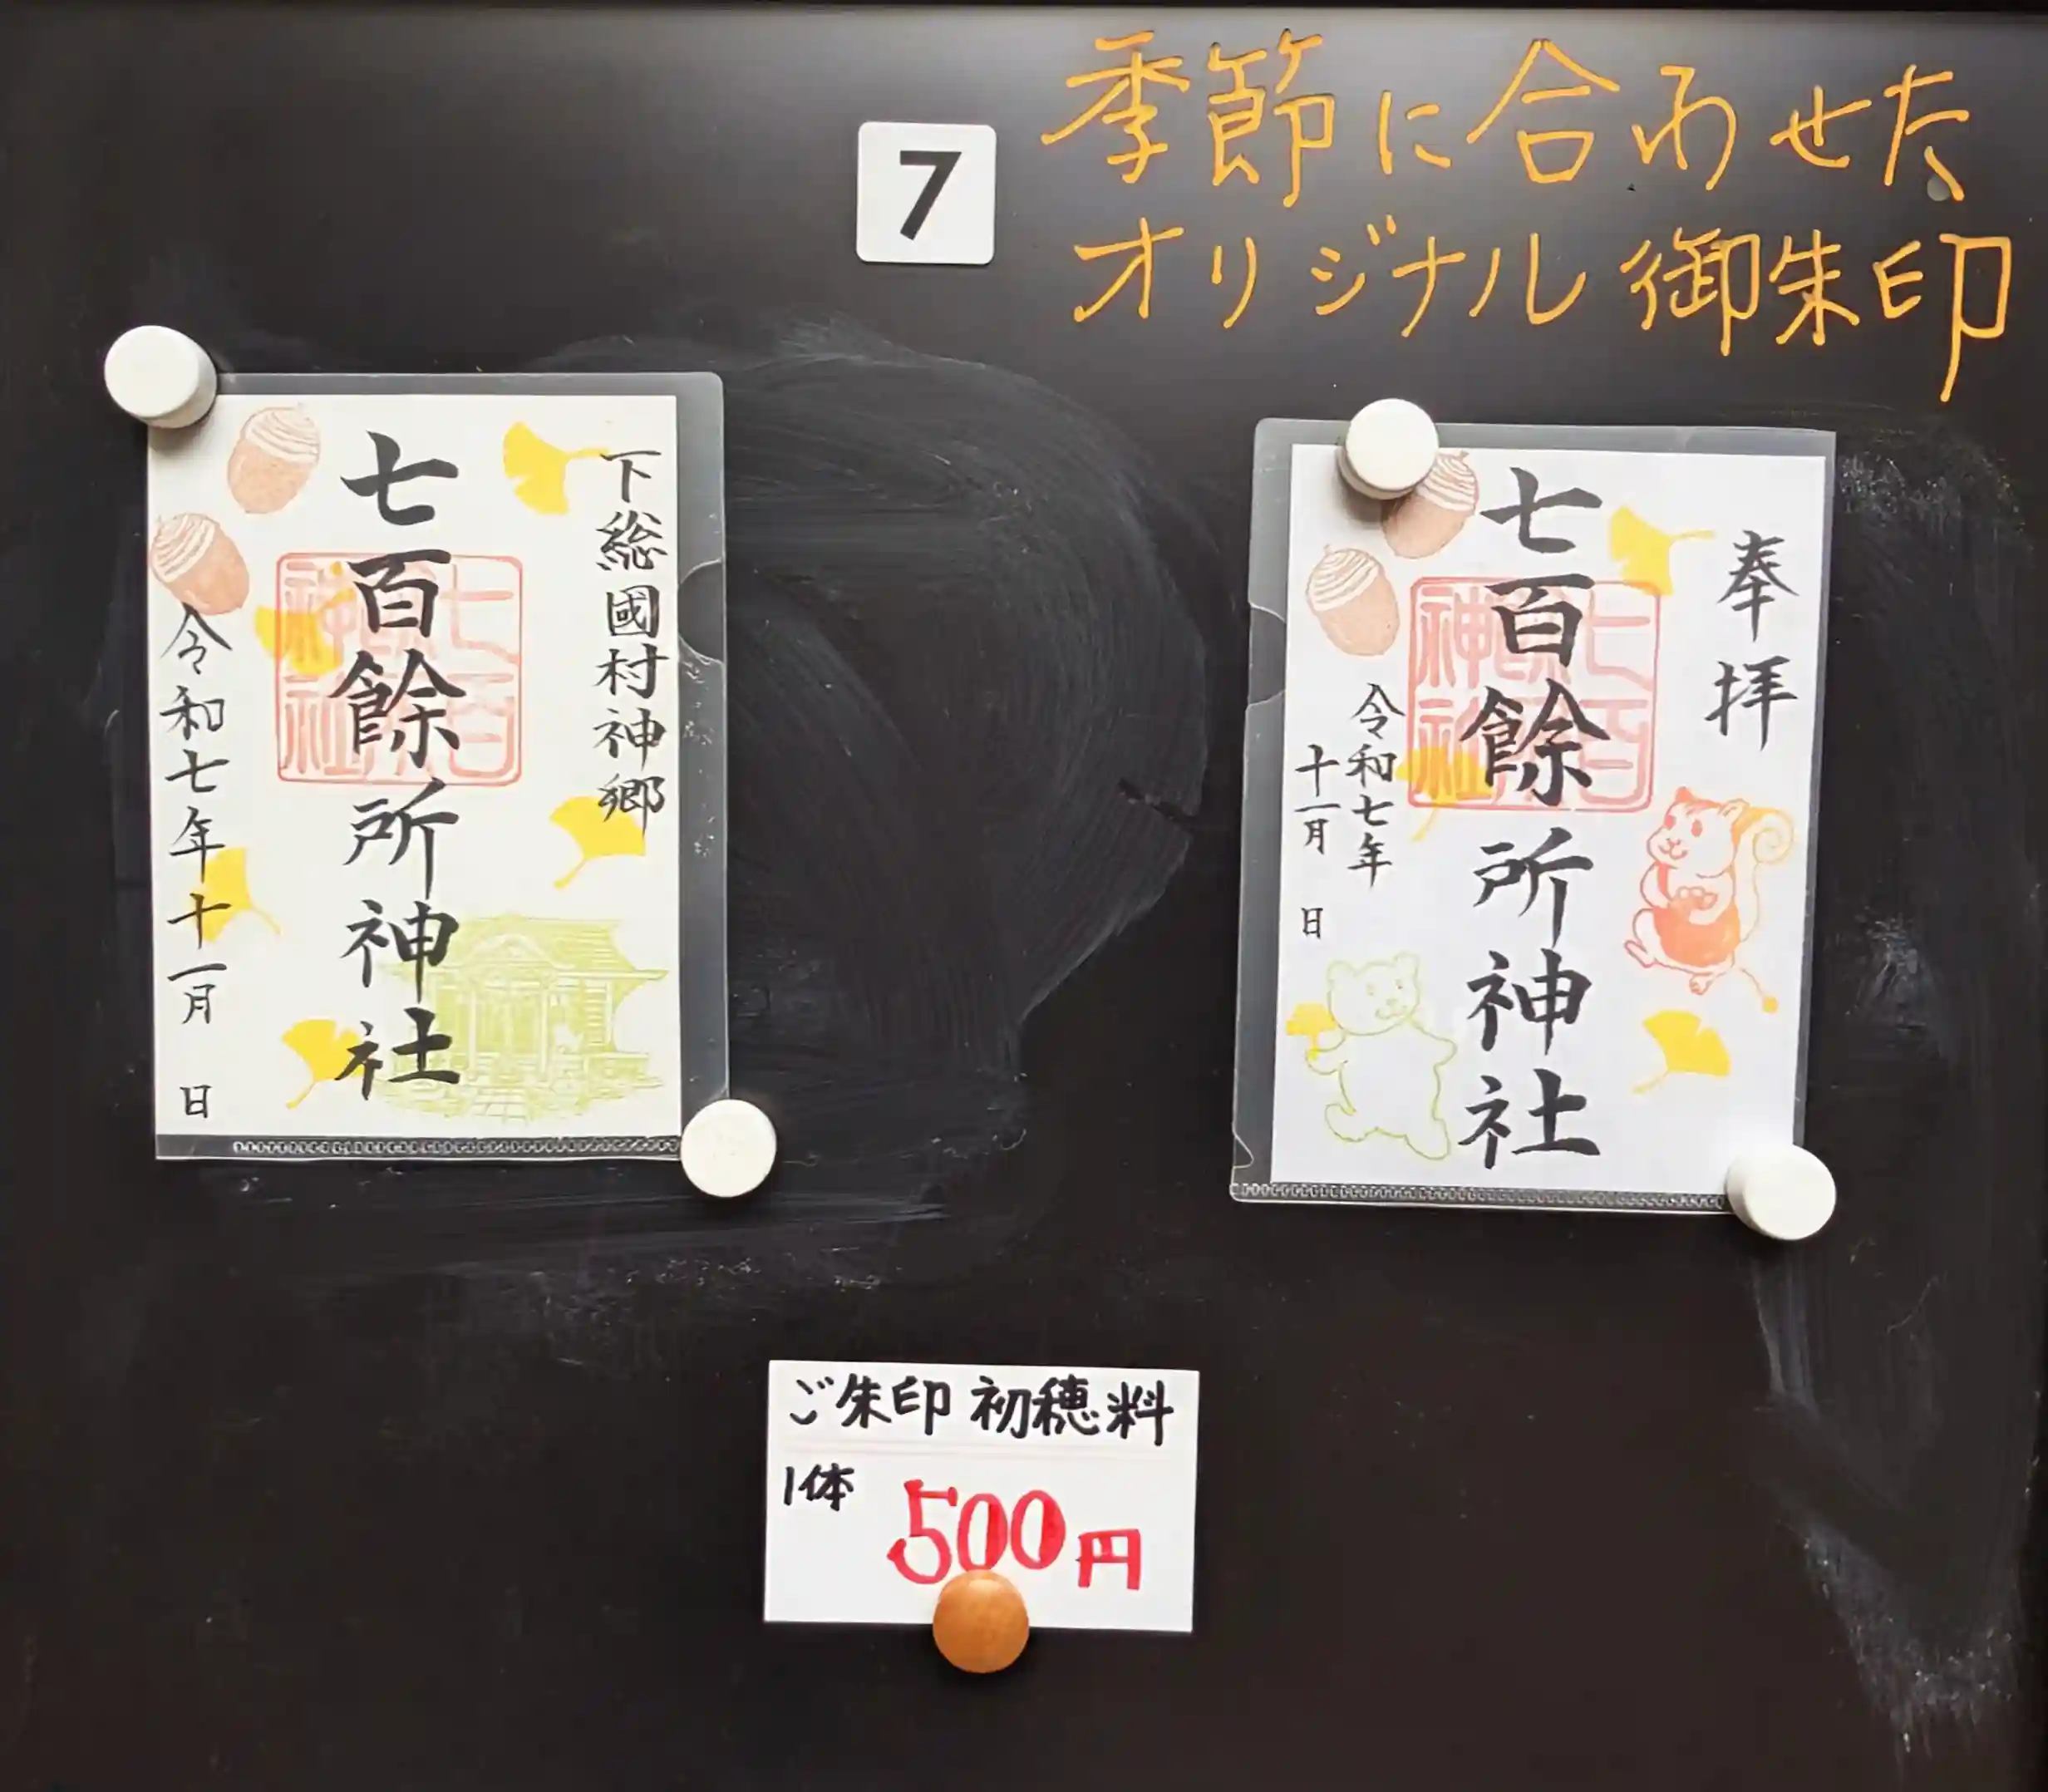 7
季節に合わせた
オリジナル御朱印
下総國村神郷
七百餘所神社
令和七年十一月 日
奉拝
七百餘所神社
令和七年
十一月 日
ご朱印 初穂料
1体 500円